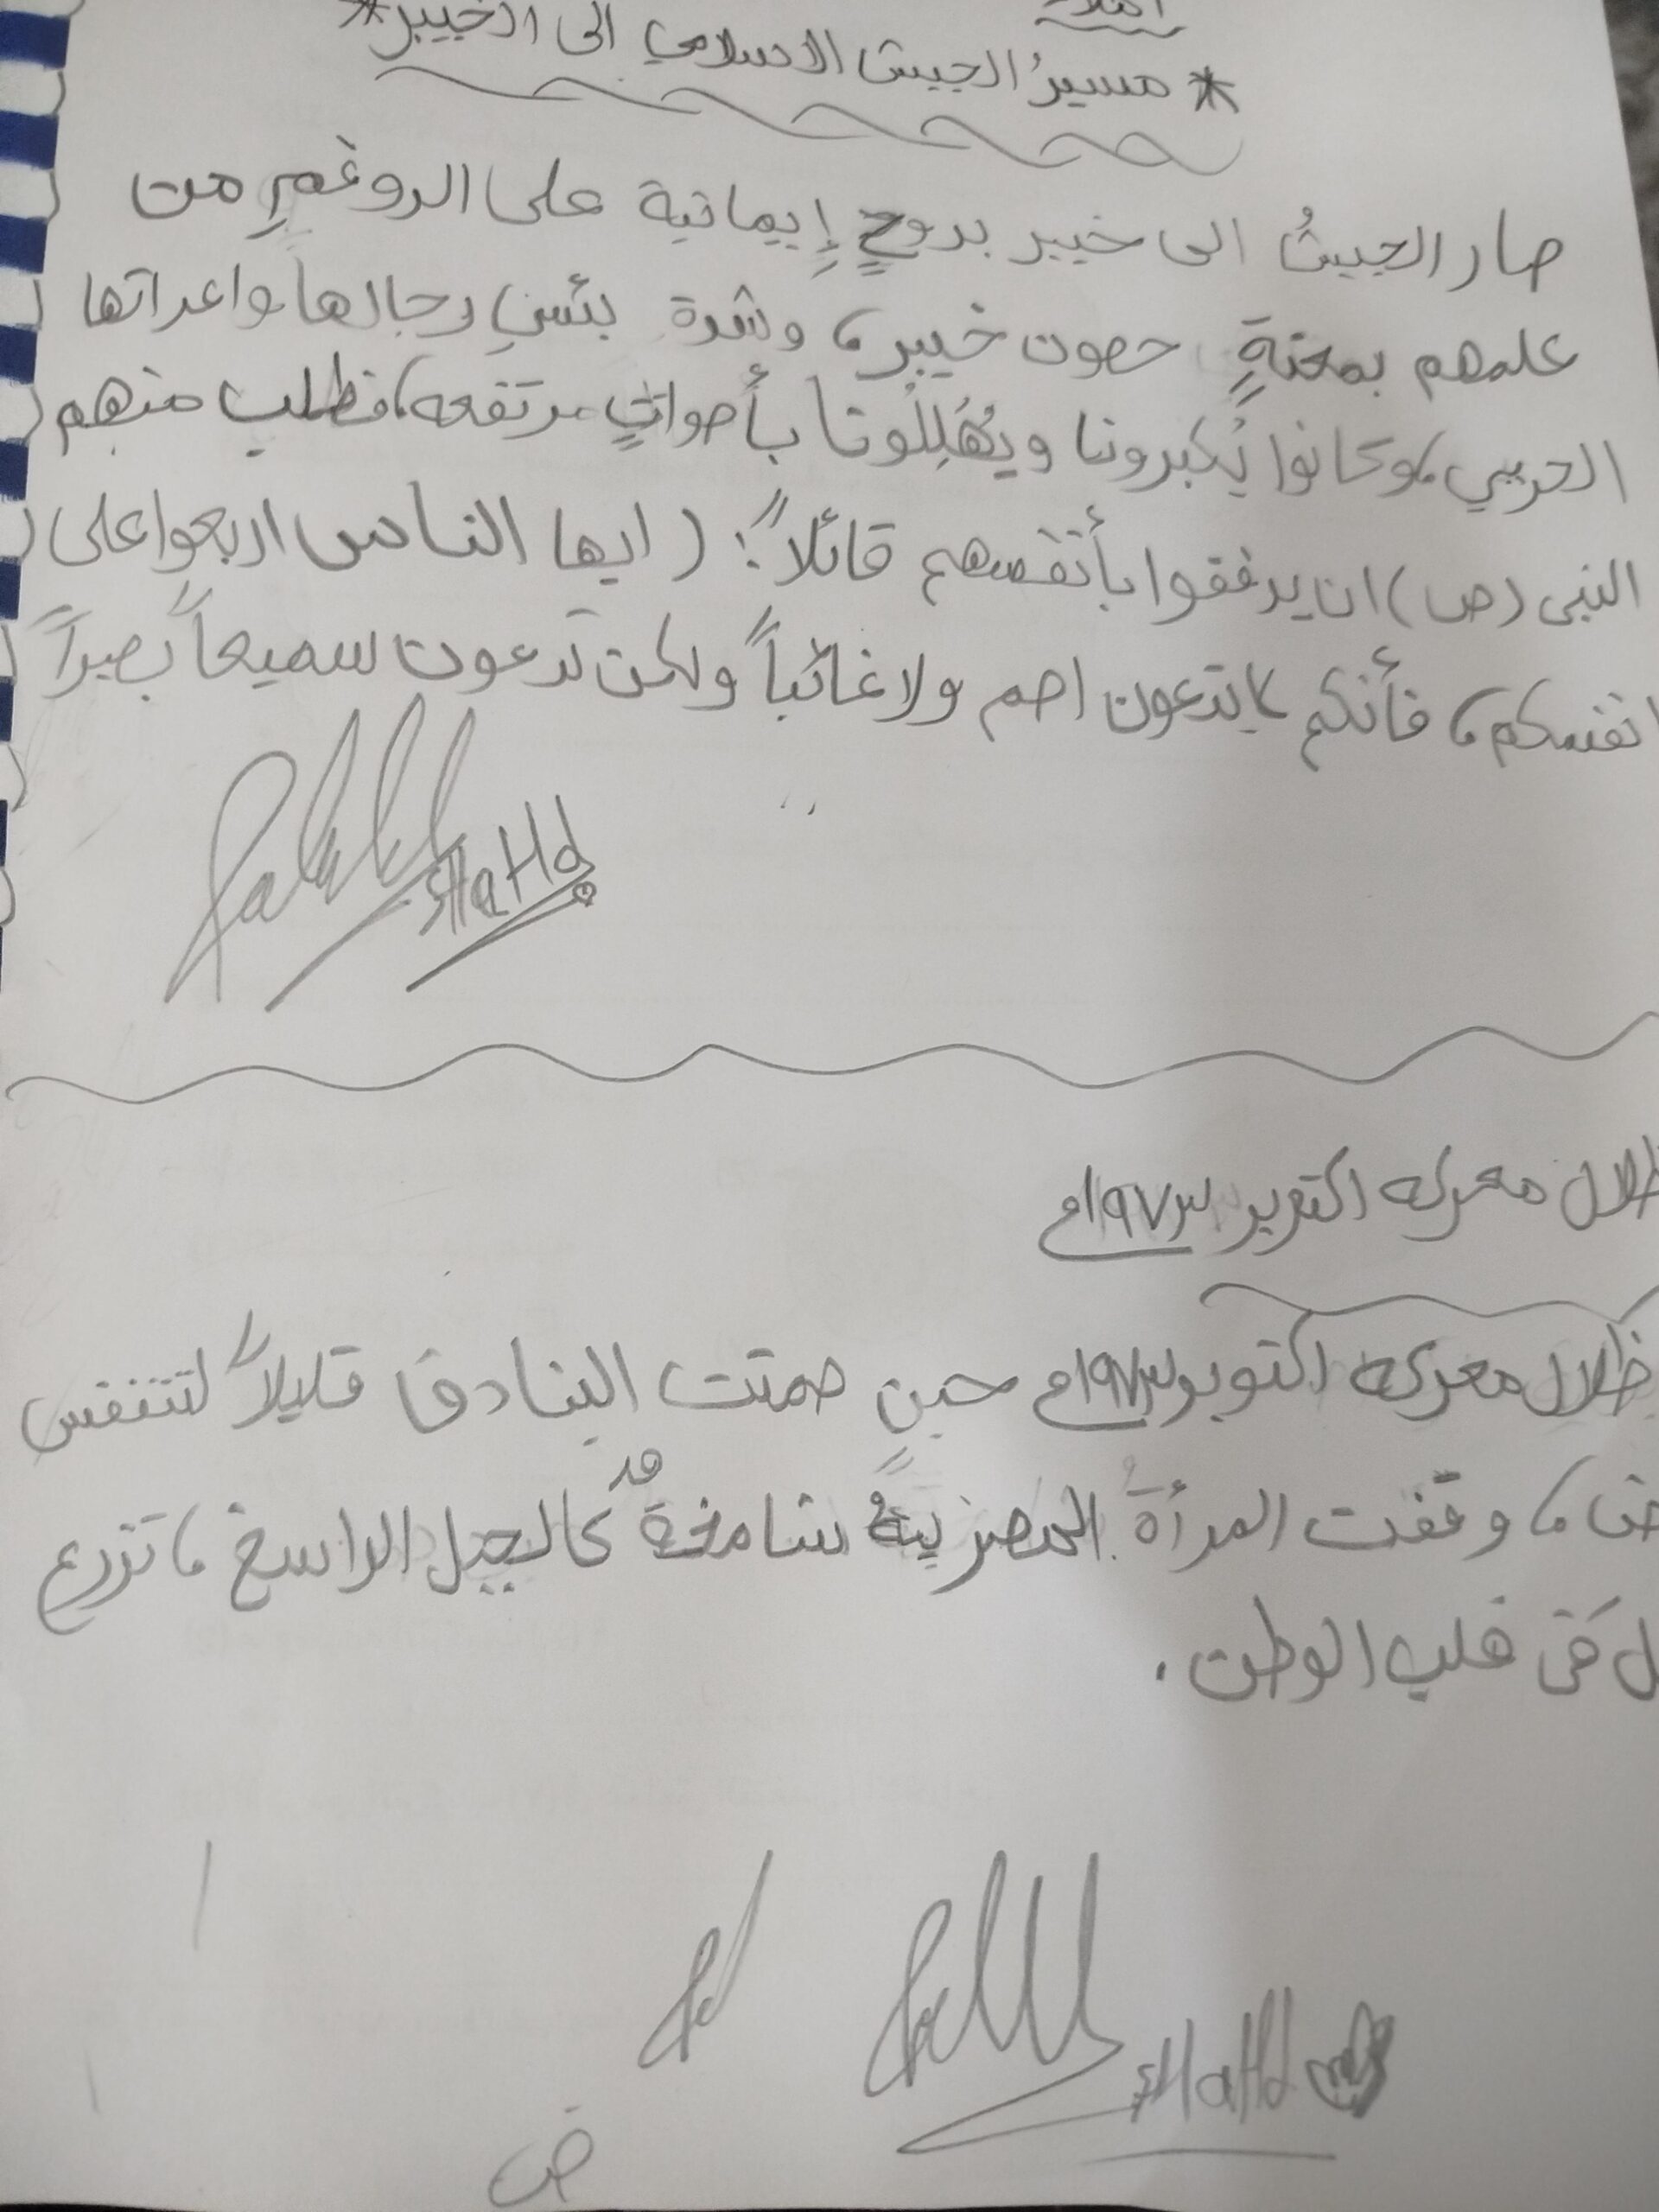 املاء
* مسيرُ الجيش الاسلامي الى الخيبر *
صار الجيشُ الى خيبر بروحٍ إِيمانية على الروغمِ من
علمهم بمعنةٍ حصون خيبر، وشدة بئسِ رجالهاً واعداتها
الحربي، وكانوا يُكبرونا ويُهَلِلُونا بأصواتٍ مرتفعه، فطلب منهم
النبى (ص) ان يرفقوا بأنفسهم قائلاً: (ايها الناس اربعوا على
انفسكم، فأنكم لاتدعون اصم ولا غائباً ولكن تدعون سميعاً بصيراً
SHaHd
ظلال معركه اكتوبر ١٩٧٣م
ظلال معركه اكتوبر ١٩٧٣م حينٍ صمتت البنادق قليلاً لتتنفس
ض، وقفت المرأةُ المصريةُ شامخةٌ كالجبل الراسخ، تزرع
ل فى قلب الوطن.
SHaHd
ض